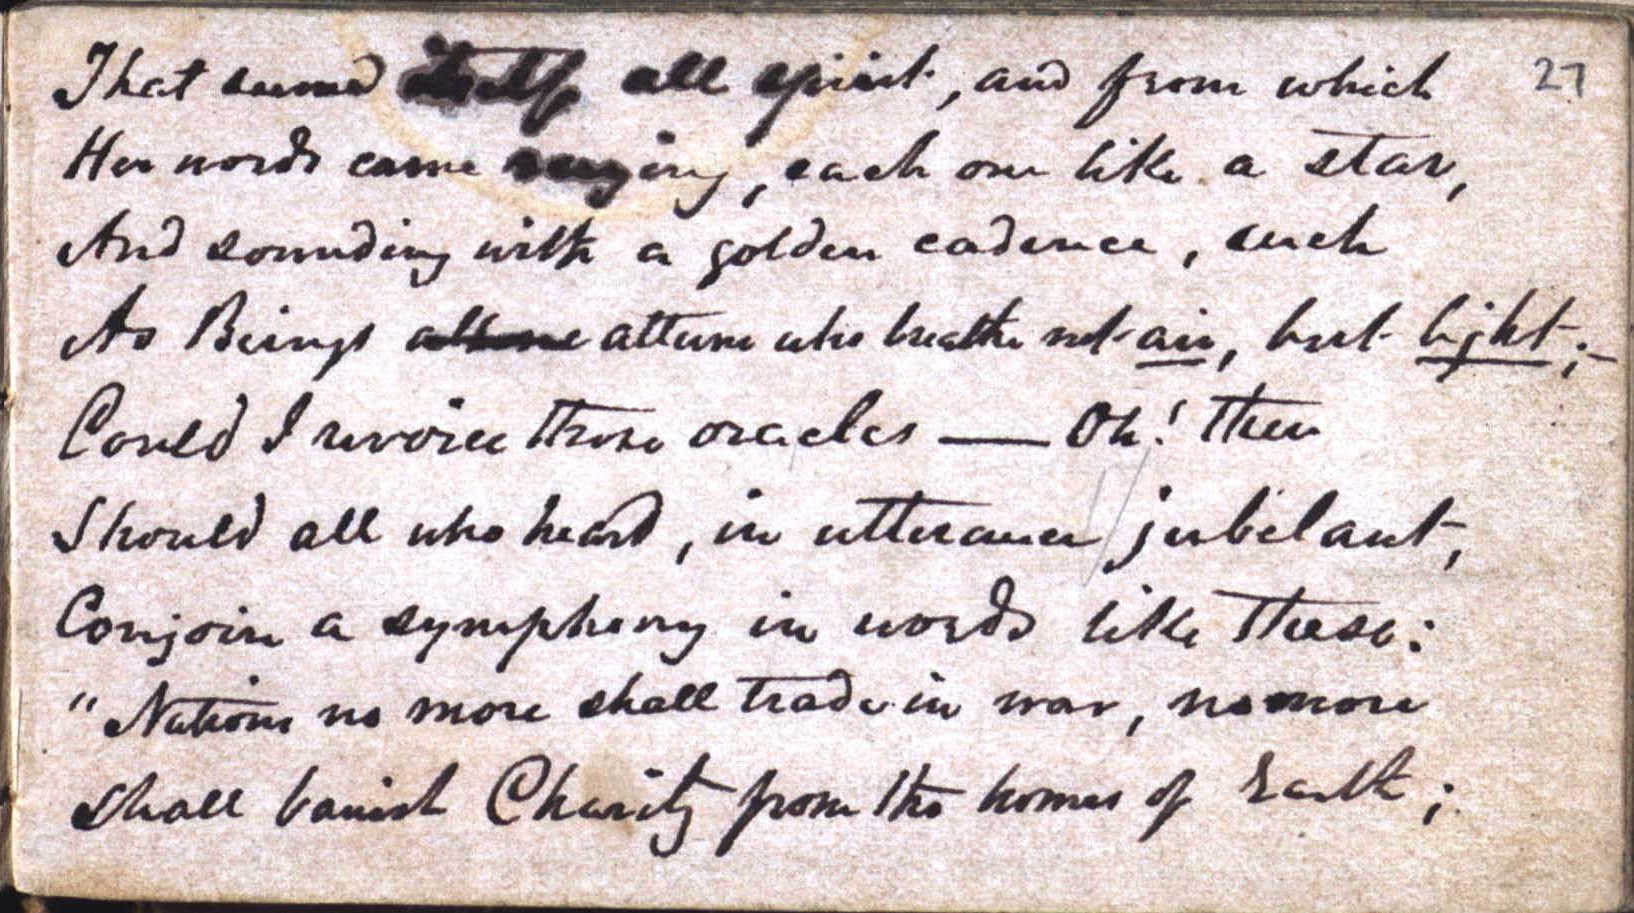 That seemed itself all spirit, and from which 27
Her words came raying, each one like a star,
And sounding with a golden cadence, such
As Beings attune who breathe not air, but light;—
Could I revoice those oracles — Oh! then
Should all who heard, in utterance jubelant,
Conjoin a symphony in words like these:
"Nations no more shall trade in war, no more
Shall banish Charity from the homes of Earth;